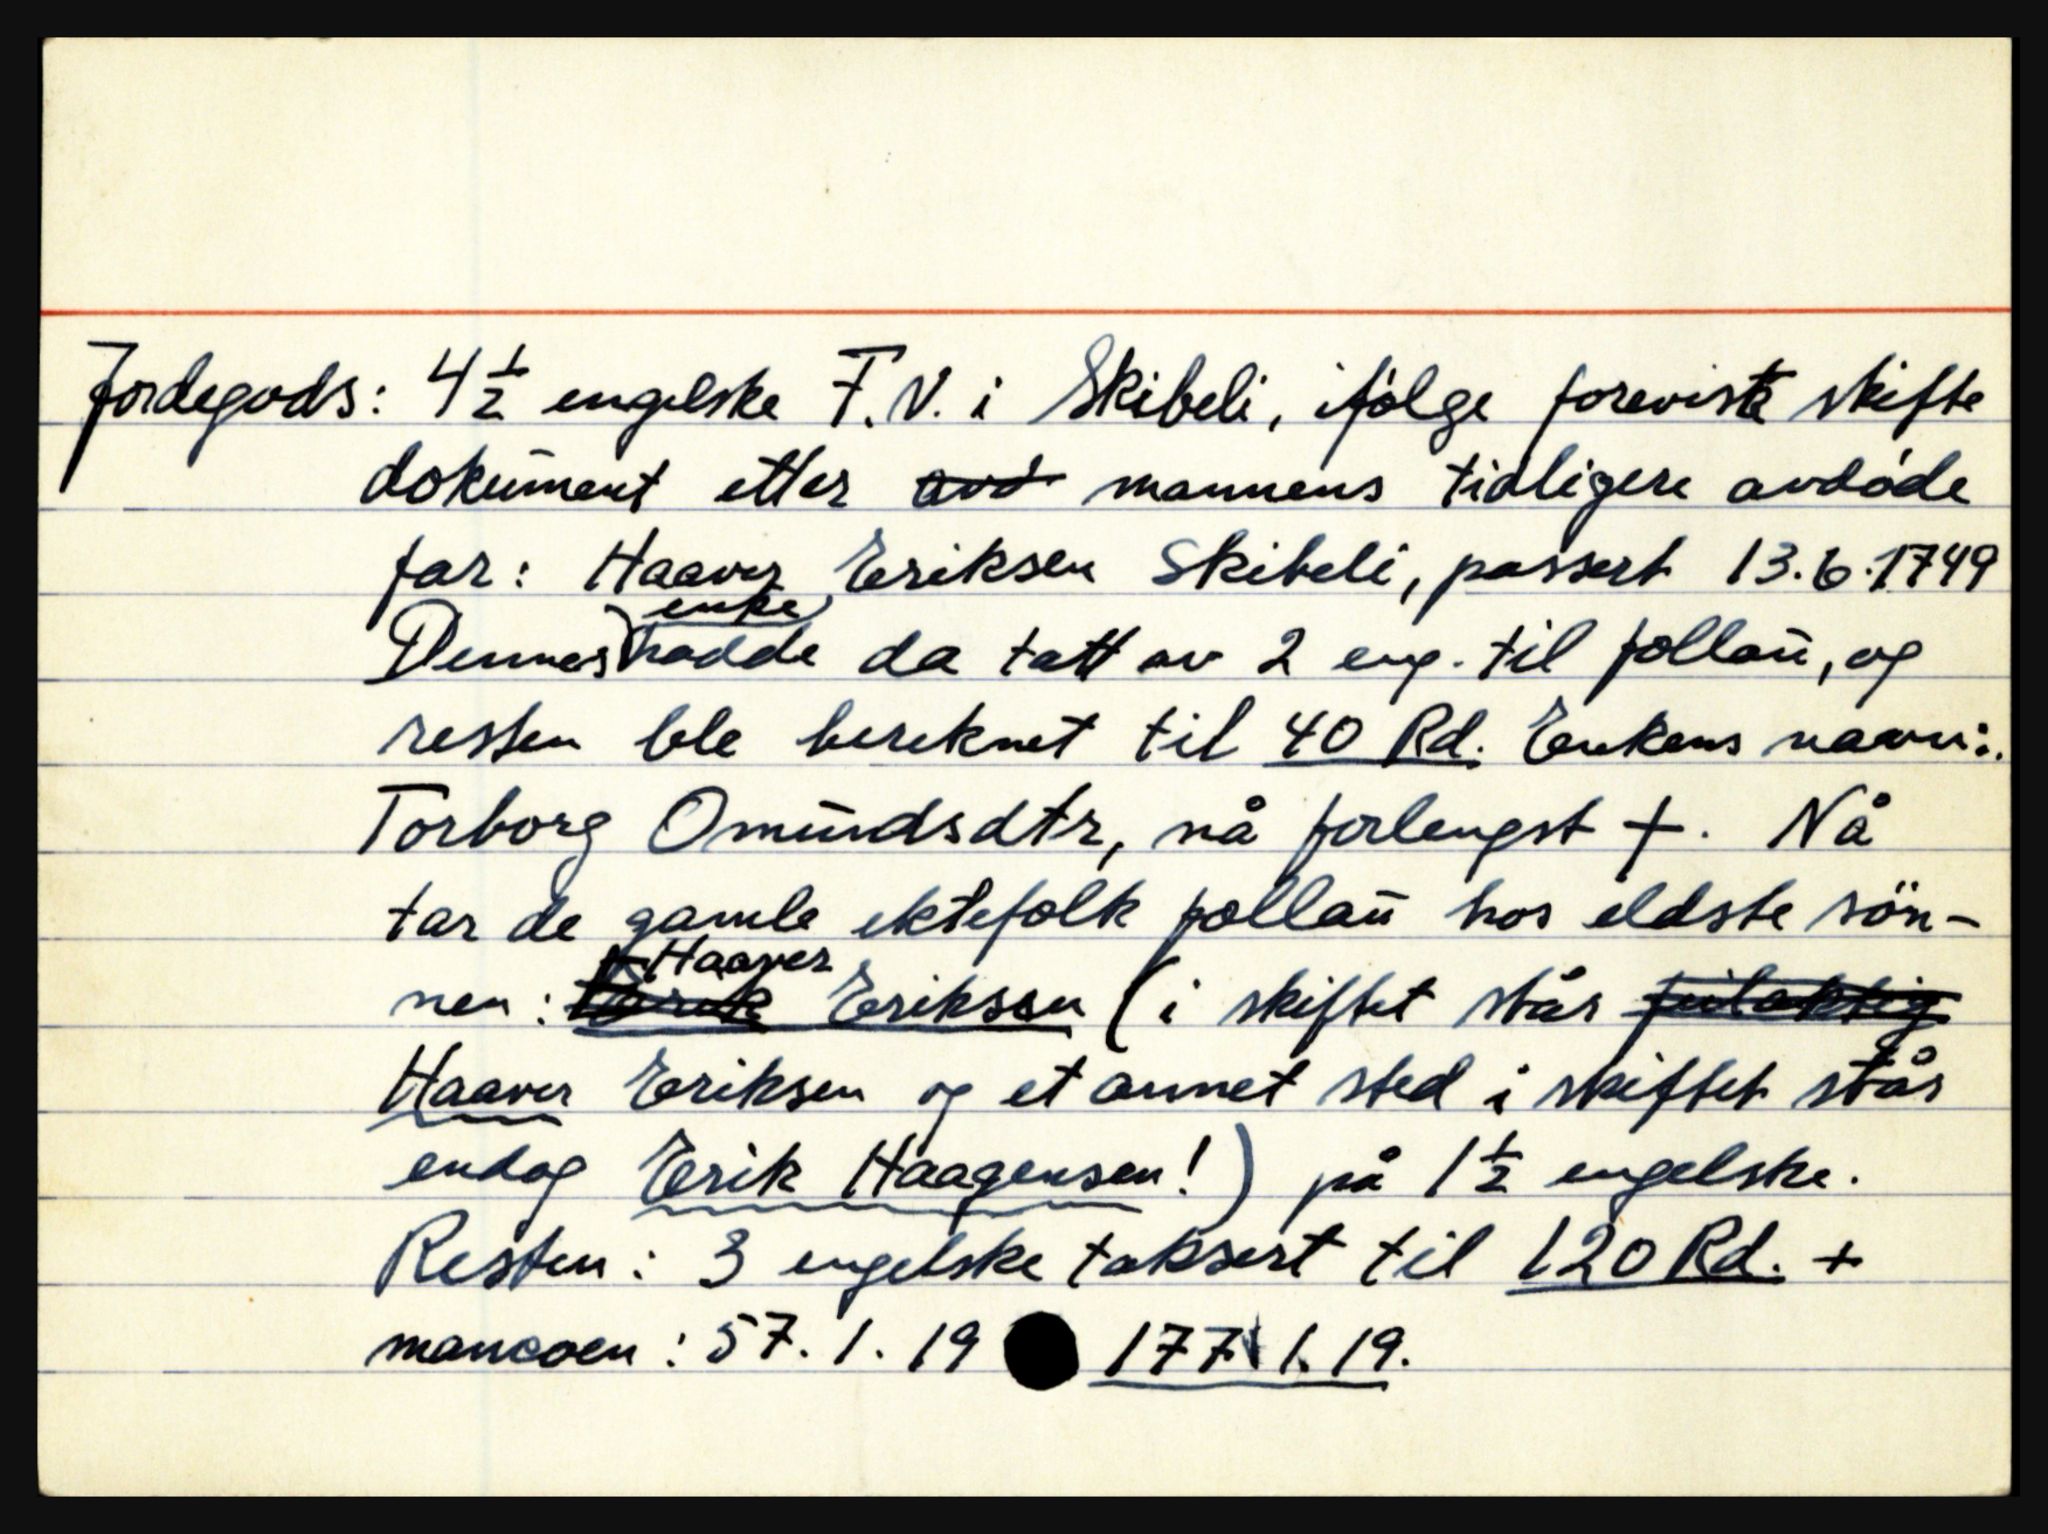 Jordegods: 4 1/2 engelske F.V. i Skibeli, ifølge foreviste skifte
dokument etter avd mannens tidligere avdøde
far: Haaver Eriksen Skibeli, passert 13.6.1749
Dennes enke hadde da tatt av 2 eng. til follau, og
resten ble bereknet til 40 Rd. Enkens navn:
Torborg Omundsdtr, nå forlengst +. Nå
tar de gamle ektefolk follau hos eldste søn-
nen: Erik Haaver Eriksen (i skiftet står feilaktig
Haaver Eriksen og et annet sted i skiftet står
endog Erik Haagensen!) på 1 1/2 engelske.
Resten: 3 engelske taksert til 120 Rd. +
mancoen: 57.1.19 177.1.19.